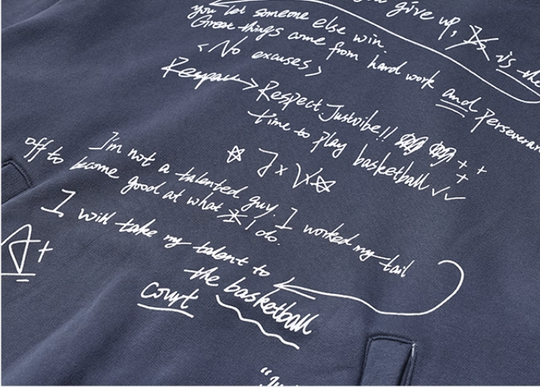 you give up, is the
you let someone else win.
Great things come from hard work and perseveran
<No excuses>
Respect Justvibe!!
time to play basketball ✓✓
J x V
I'm not a talented guy. I worked my tail
off to become good at what I do.
I will take my talent to
the basketball
court
A+